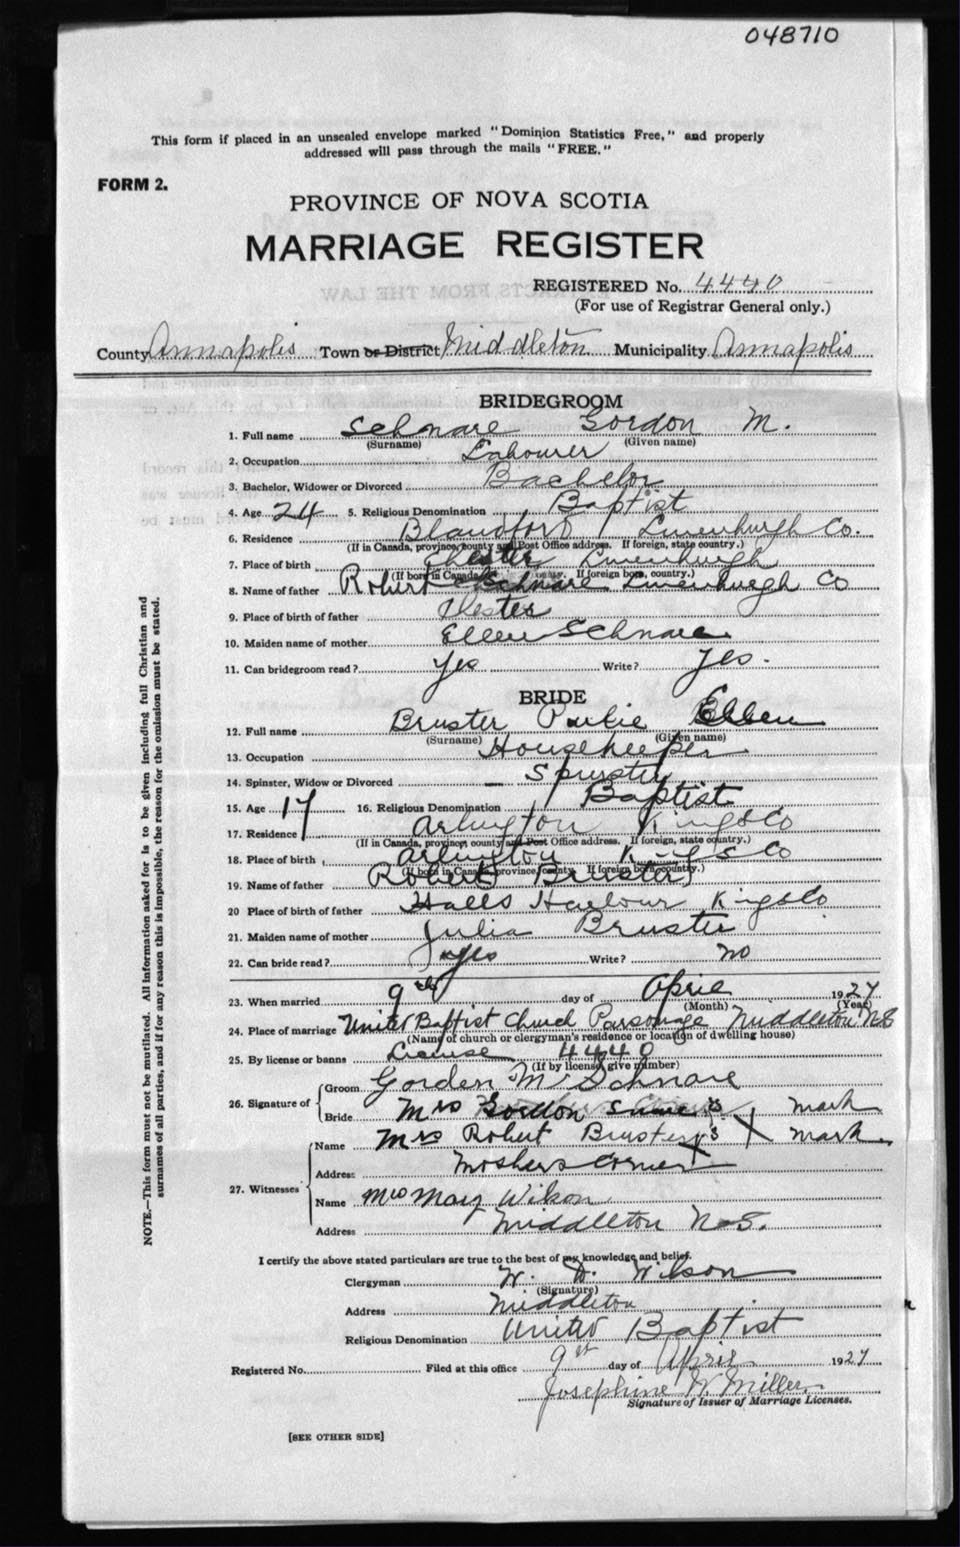 048710
This form if placed in an unsealed envelope marked "Dominion Statistics Free," and properly
addressed will pass through the mails "FREE."
FORM 2.
PROVINCE OF NOVA SCOTIA
MARRIAGE REGISTER
REGISTERED No. 4440
(For use of Registrar General only.)
County Annapolis Town or District Middleton Municipality Annapolis
BRIDEGROOM
1. Full name Schnare Gordon M.
(Surname) (Given name)
2. Occupation Labourer
3. Bachelor, Widower or Divorced Bachelor
4. Age 24 5. Religious Denomination Baptist
6. Residence Blandford Lunenburgh Co.
(If in Canada, province, county and Post Office address. If foreign, state country.)
7. Place of birth Chester Lunenburgh
(If born in Canada, province, county. If foreign born, country.)
8. Name of father Robert Schnare Lunenburgh Co
9. Place of birth of father Chester
10. Maiden name of mother Ellen Schnare
11. Can bridegroom read? Yes Write? Yes.
BRIDE
12. Full name Bruster Ellen
(Surname) (Given name)
13. Occupation Housekeeper
14. Spinster, Widow or Divorced
15. Age 17 16. Religious Denomination Baptist
17. Residence Arlington Kings Co
(If in Canada, province, county and Post Office address. If foreign, state country.)
18. Place of birth Arlington Kings Co
(If born in Canada, province, county. If foreign born, country.)
19. Name of father Robert Bruster
20 Place of birth of father Halls Harbour Kings Co
21. Maiden name of mother Julia Bruster
22. Can bride read? Yes Write? no
23. When married 9th day of April 1927
(Month) (Year)
24. Place of marriage United Baptist Church Parsonage Middleton N.S
(Name of church or clergyman's residence or location of dwelling house)
25. By license or banns License 4440
(If by license, give number)
26. Signature of Groom Gorden M Schnare
Bride Mrs Gordon X mark
27. Witnesses Name Mrs Robert Bruster X mark
Address Moshers Corner
Name Mrs Mary Wilson
Address Middleton N.S.
I certify the above stated particulars are true to the best of my knowledge and belief.
Clergyman W. D. Wilson
(Signature)
Address Middleton
Religious Denomination United Baptist
Registered No. Filed at this office 9th day of April 1927
Josephine W. Miller
Signature of Issuer of Marriage Licenses.
[SEE OTHER SIDE]
NOTE.—This form must not be mutilated. All information asked for is to be given including full Christian and
surnames of all parties, and if for any reason this is impossible, the reason for the omission must be stated.